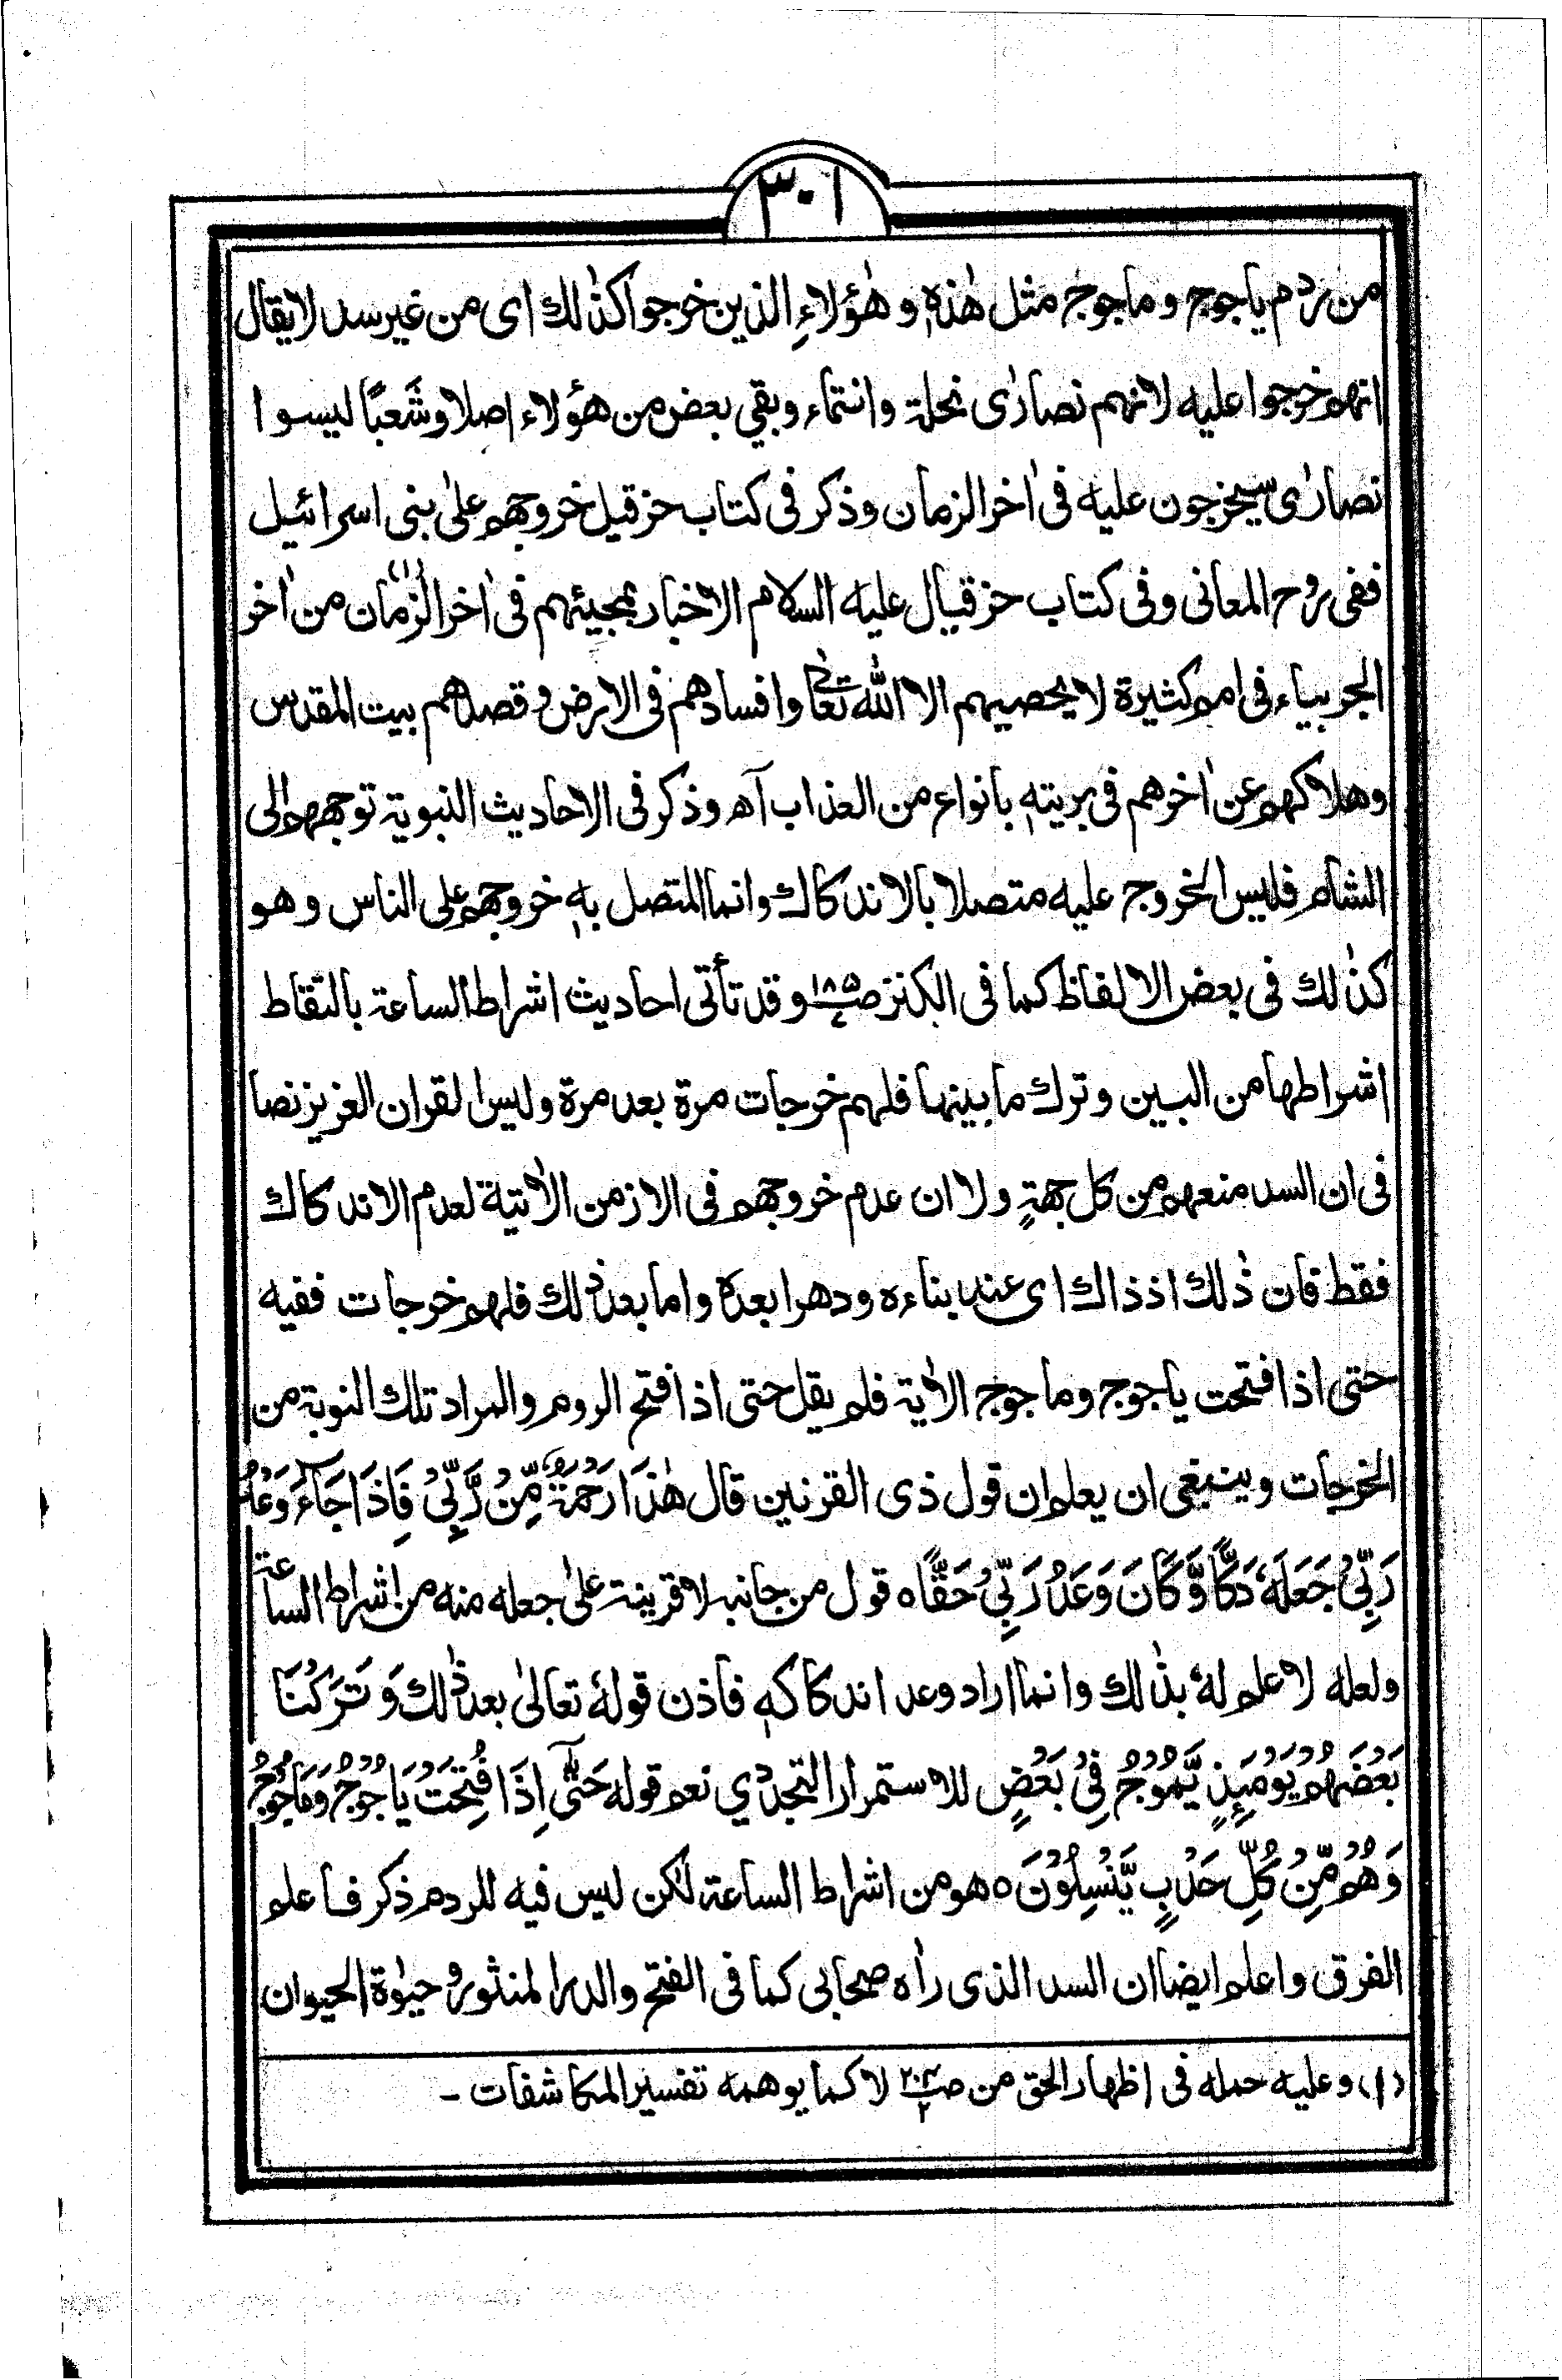 ٣٠١
من ردم ياجوج وماجوج مثل هٰذهٖ وهٰؤلاءِ الذين خرجوا كذٰلك اى من غير سد لا يقال
انهم خرجوا عليه لانهم نصارٰى نحلة وانتماء وبقي بعض من هؤلاء اصلا وشَعبًا ليسوا
نصارٰى سيخرجون عليه فى اٰخر الزمان وذكر فى كتاب حزقيل خروجهم علىٰ بنى اسرائيل
ففى روح المعانى وفى كتاب حزقيال عليه السلام الاخبار بمجيئهم فى اٰخر الزمان(١) من اٰخر
الجربياء فى امم كثيرة لا يحصيهم الا اللّٰه تعالىٰ وافسادهم فى الارض وقصدهم بيت المقدس
وهلاكهم عن اٰخرهم فى بريتهٖ بانواع من العذاب آھ وذكر فى الاحاديث النبوية توجههم الى
الشام فليس الخروج عليه متصلا بالاندكاك وانما المتصل بهٖ خروجهم على الناس وهو
كذٰلك فى بعض الالفاظ كما فى الكنز صـ١٨٥ وقد تأتى احاديث اشراط الساعة بالتقاط
اشراطها من البين وترك ما بينها فلهم خرجات مرة بعد مرة وليس القران العزيز نصا
فى ان السد منعهم من كل جهةٍ ولا ان عدم خروجهم فى الازمن الاٰتية لعدم الاندكاك
فقط فان ذٰلك اذ ذاك اى عند بناءه ودهرا بعدهٗ واما بعد ذٰلك فلهم خرجات ففيه
حتى اذا فتحت ياجوج وماجوج الاٰية فلم يقل حتى اذا فتح الردم والمراد تلك النوبة من
الخرجات وينبغى ان يعلم ان قول ذى القرنين قال هٰذَا رَحْمَةٌ مِّنْ رَّبِّىْ فَاِذَا جَآءَ وَعْدُ
رَبِّىْ جَعَلَهٗ دَكَّآ وَّكَانَ وَعْدُ رَبِّىْ حَقًّا ه قول من جانبه لا قرينة علىٰ جعله منه من اشراط الساعة
ولعله لا علم لهٗ بذٰلك وانما اراد وعد اندكاكهٖ فاذن قولهٗ تعالىٰ بعد ذٰلك وَ تَرَكْنَا
بَعْضَهُمْ يَوْمَئِذٍ يَّمُوْجُ فِىْ بَعْضٍ للاستمرار التجددي نعم قوله حَتّٰى اِذَا فُتِحَتْ يَاْجُوْجُ وَمَاْجُوْجُ
وَهُمْ مِّنْ كُلِّ حَدَبٍ يَّنْسِلُوْنَ ه هو من اشراط الساعة لٰكن ليس فيه للردم ذكر فاعلم
الفرق واعلم ايضا ان السد الذى راٰه صحابى كما فى الفتح والدر المنثور وحيٰوة الحيوان
(١) وعليه حمله فى اظهار الحق من صـ لا كما يوهمه تفسير المكاشفات -